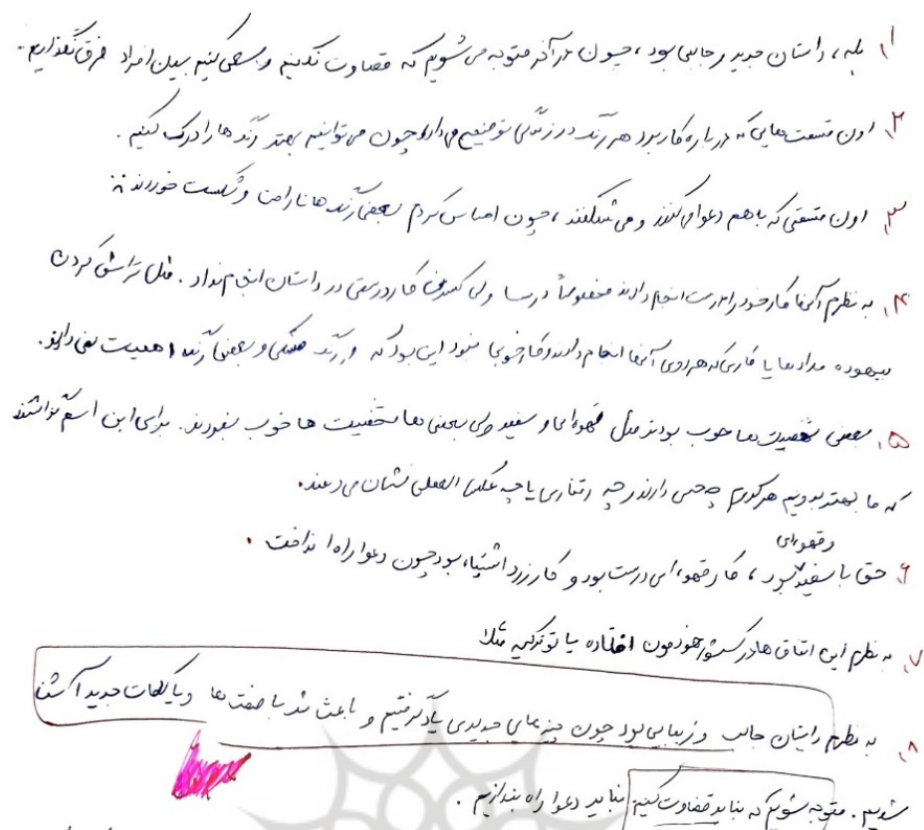 ۱. بله، داستان جدید و جالبی بود، چون در آخر متوجه می‌شویم که قضاوت نکنیم و سعی کنیم بین افراد فرق نگذاریم.
۲. اون قسمت‌هایی که درباره کاربرد هر رنگ در زندگی توضیح می‌داد چون می‌توانیم بهتر رنگ‌ها را درک کنیم.
۳. اون قسمتی که باهم دعوا می‌کنند و می‌شکنند، چون احساس کردم بعضی رنگ‌ها ناراحت و شکست خوردند.
۴. به نظرم آنها کار خود را درست انجام دادند مخصوصاً ولی کار درستی در داستان انجام نداد. مثل تراش کردن
بیهوده مدادها یا کاری که هر دوی آنها انجام دادند کار خوبی نبود این بود که رنگ مشکی و بعضی رنگ اهمیت نمی‌دادند.
۵. بعضی شخصیت‌ها خوب بودند مثل قهوه‌ای و سفید ولی بعضی‌ها شخصیت‌ها خوب نبودند. برای این اسم گذاشتند
که ما بهتر بدونیم هر کدوم چه حسی دارند و چه رفتاری یا چه عکس العملی نشان می‌دهند.
و قهوه‌ای
۶. حق با سفید بود، کار قهوه‌ای درست بود و کار زرد اشتباه بود چون دعوا راه انداخت.
۷. به نظرم این اتفاق‌ها در کشور خودمون افتاده یا تو ترکیه مثلا
۸. به نظرم داستان جالب و زیبایی بود چون چیزهای جدیدی یاد گرفتیم و باعث شد با صفت‌ها و یا کلمات جدید آشنا
شدیم. متوجه شویم که نباید قضاوت کنیم نباید دعوا راه بندازیم.